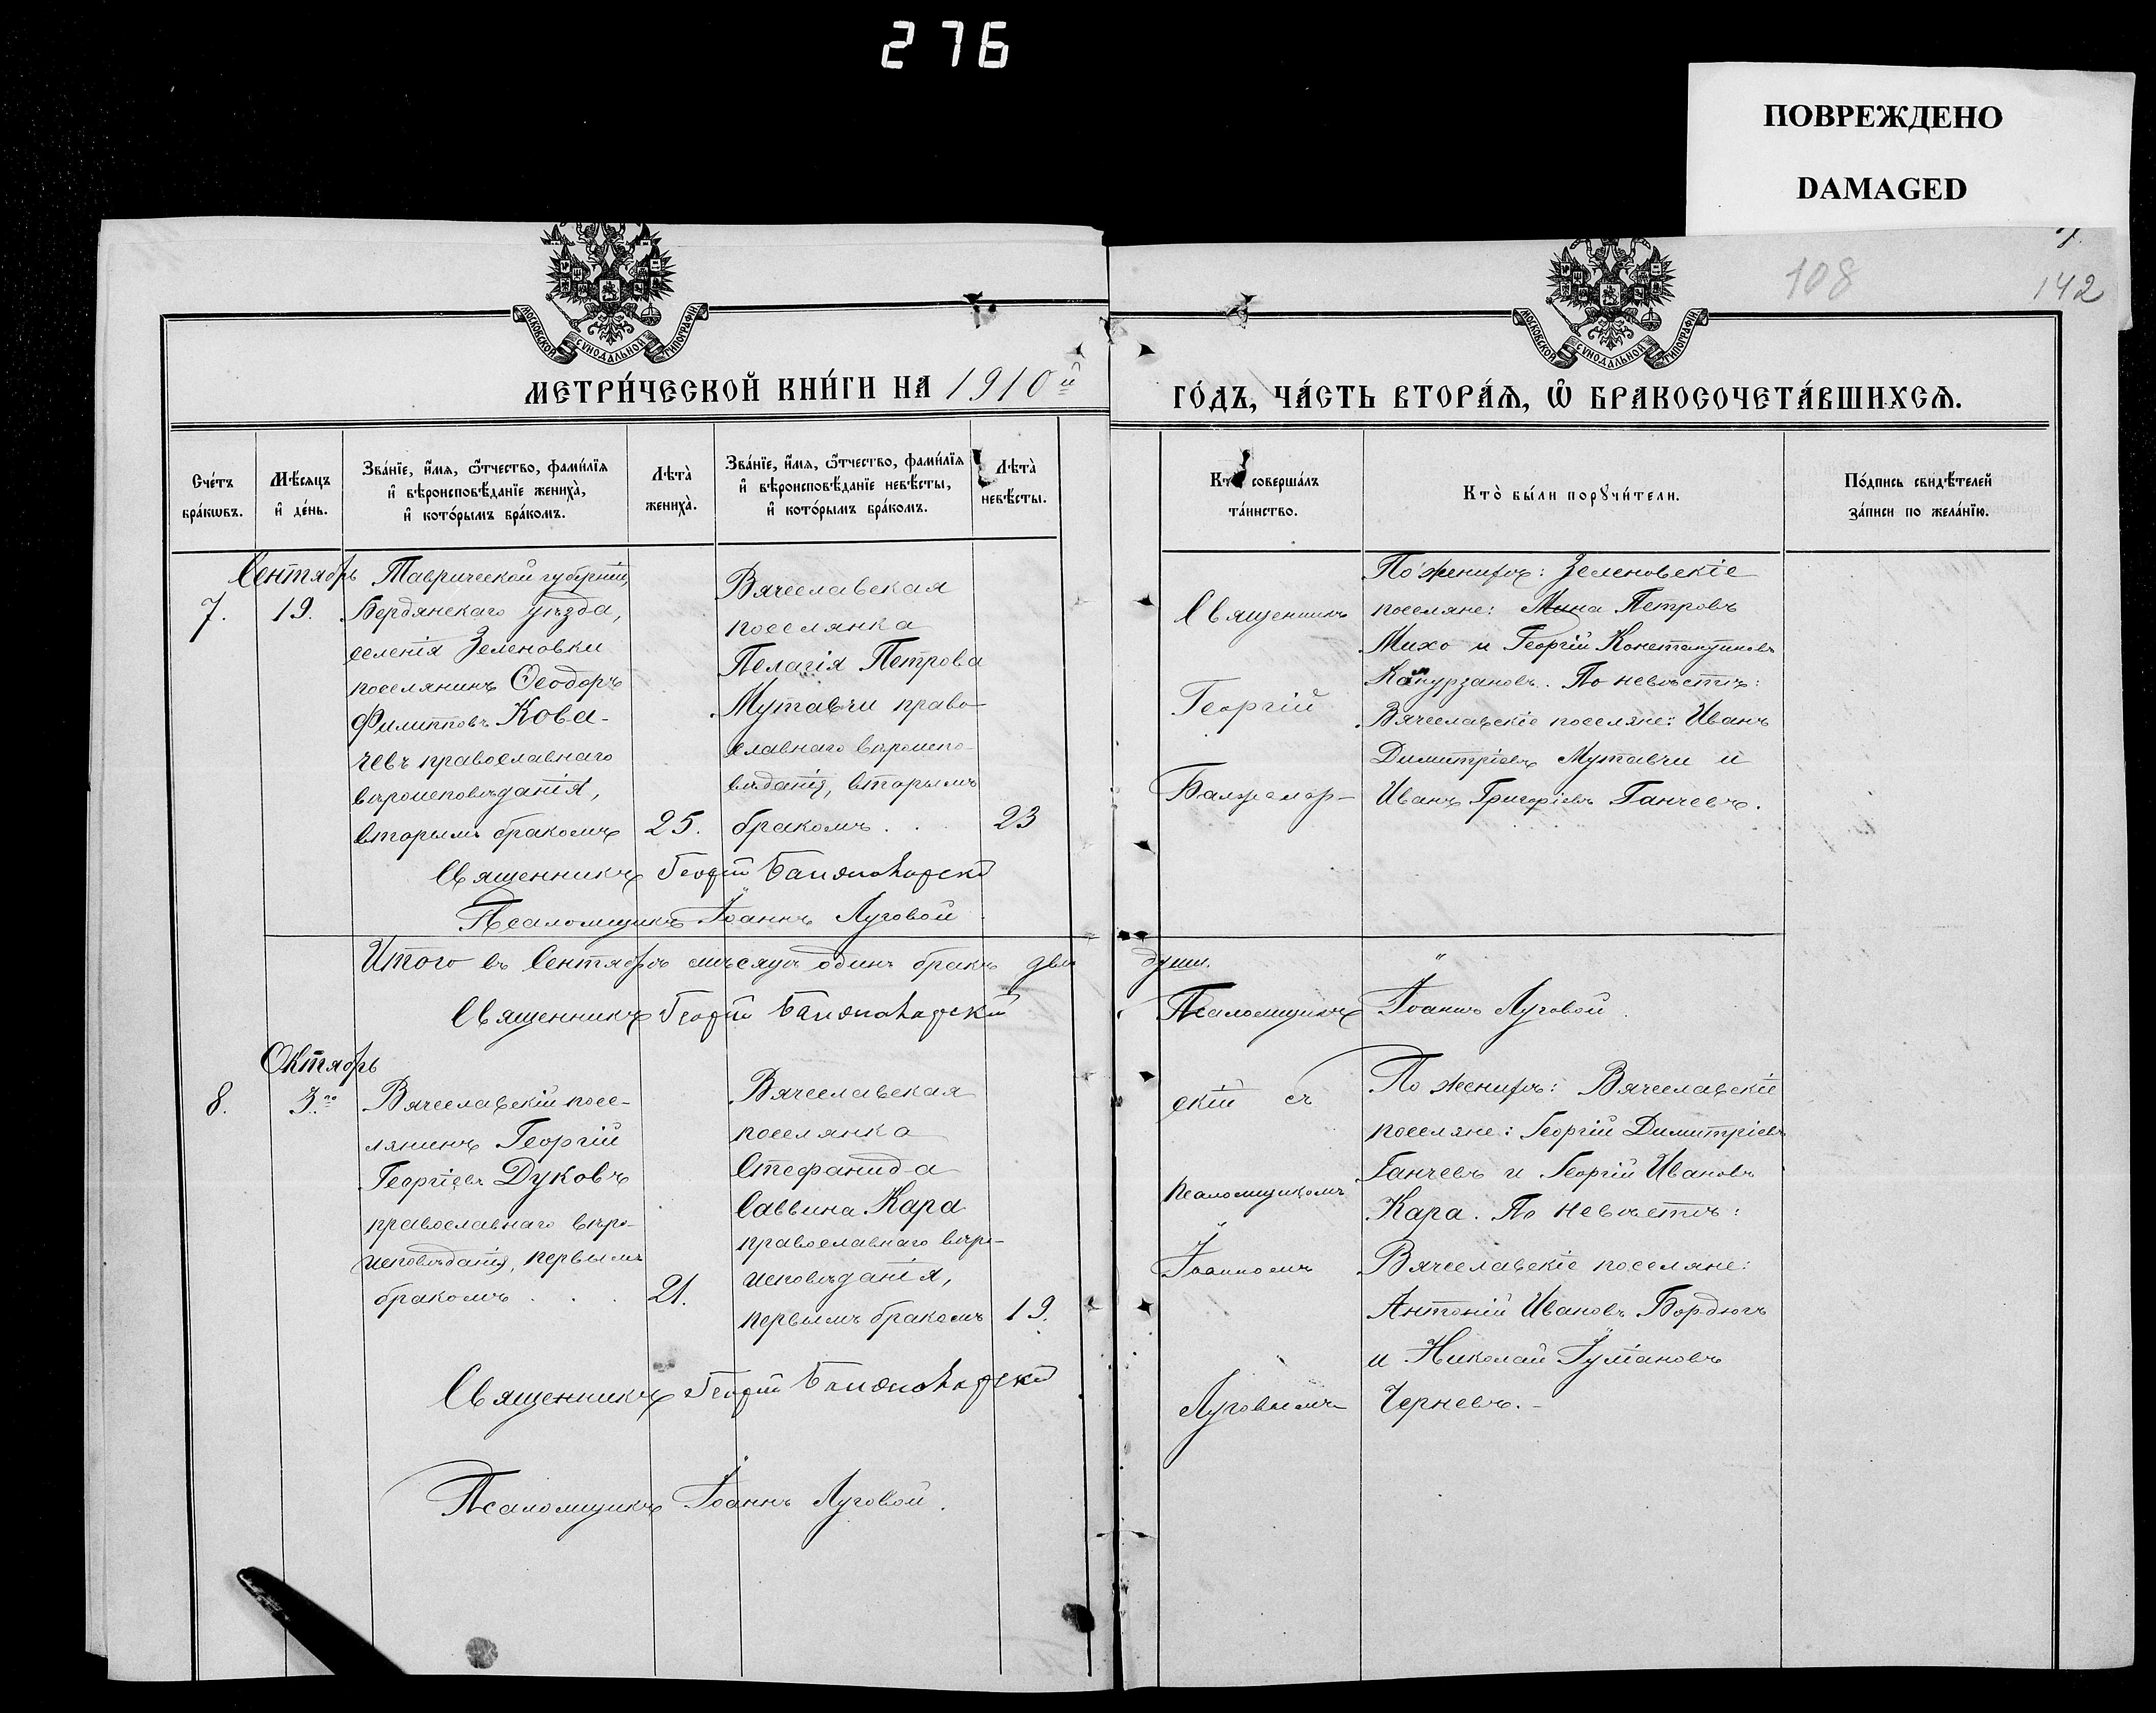 276
ПОВРЕЖДЕНО
DAMAGED
108
142
МОСКОВСКОЙ СѴНОДАЛЬНОЙ ТИПОГРАФІИ
МОСКОВСКОЙ СѴНОДАЛЬНОЙ ТИПОГРАФІИ
МЕТРИ́ЧЕСКОЙ КНИ́ГИ НА 1910й
ГО́ДЪ, ЧА́СТЬ ВТОРА́Ѧ, Ѽ БРАКОСОЧЕТА́ВШИХСѦ.
Сче́тъ
бра́кѡвъ.
Мѣ́сяцъ
и҆ де́нь.
Зва́нїе, и҆́мя, ѻ҆́тчество, фами́лїя
и҆ вѣроисповѣ́данїе жениха̀,
и҆ кото́рымъ бра́комъ.
Лѣта̀
жениха̀.
Зва́нїе, и҆́мя, ѻ҆́тчество, фами́лїя
и҆ вѣроисповѣ́данїе невѣ́сты,
и҆ кото́рымъ бра́комъ.
Лѣта̀
невѣ́сты.
Кто̀ соверша́лъ
та́инство.
Кто̀ бы́ли порꙋчи́тели.
По́дпись свидѣ́телей
за́писи по жела́нїю.
7.
Сентябрь
19.
Таврической губерніи,
Бердянскаго уѣзда,
селенія Зеленовки
поселянинъ Ѳеодоръ
Филипповъ Кова-
чевъ православнаго
вѣроисповѣданія,
вторымъ бракомъ
25.
Вячеславская
поселянка
Пелагія Петрова
Мутавчи право-
славнаго вѣроиспо-
вѣданія, вторымъ
бракомъ . .
23
Священникъ
Георгій
Балжалар-
По женихѣ: Зеленовскіе
поселяне: Мина Петровъ
Михо и Георгій Константиновъ
По невѣстѣ:
Вячеславскіе поселяне: Иванъ
Димитріевъ Мутавчи и
Иванъ Григоріевъ Ганчевъ.
Священникъ Георгій
Псаломщикъ Іоаннъ Луговой
Итого въ Сентябрѣ мѣсяцѣ одинъ бракъ двѣ души.
Священникъ Георгій
Псаломщикъ Іоаннъ Луговой.
8.
Октябрь
3.го
Вячеславскій посе-
лянинъ Георгій
Георгіевъ Дуковъ
православнаго вѣро-
исповѣданія, первымъ
бракомъ . . .
21.
Вячеславская
поселянка
Стефанида
Саввина Кара
православнаго вѣро-
исповѣданія,
первымъ бракомъ
19.
скій съ
псаломщикомъ
Іоанномъ
Луговымъ
По женихѣ: Вячеславскіе
поселяне: Георгій Димитріевъ
Ганчевъ и Георгій Ивановъ
Кара. По невѣстѣ:
Вячеславскіе поселяне:
Антоній Ивановъ Бордюгъ
и Николай
Черневъ.-
Священникъ Георгій
Псаломщикъ Іоаннъ Луговой.